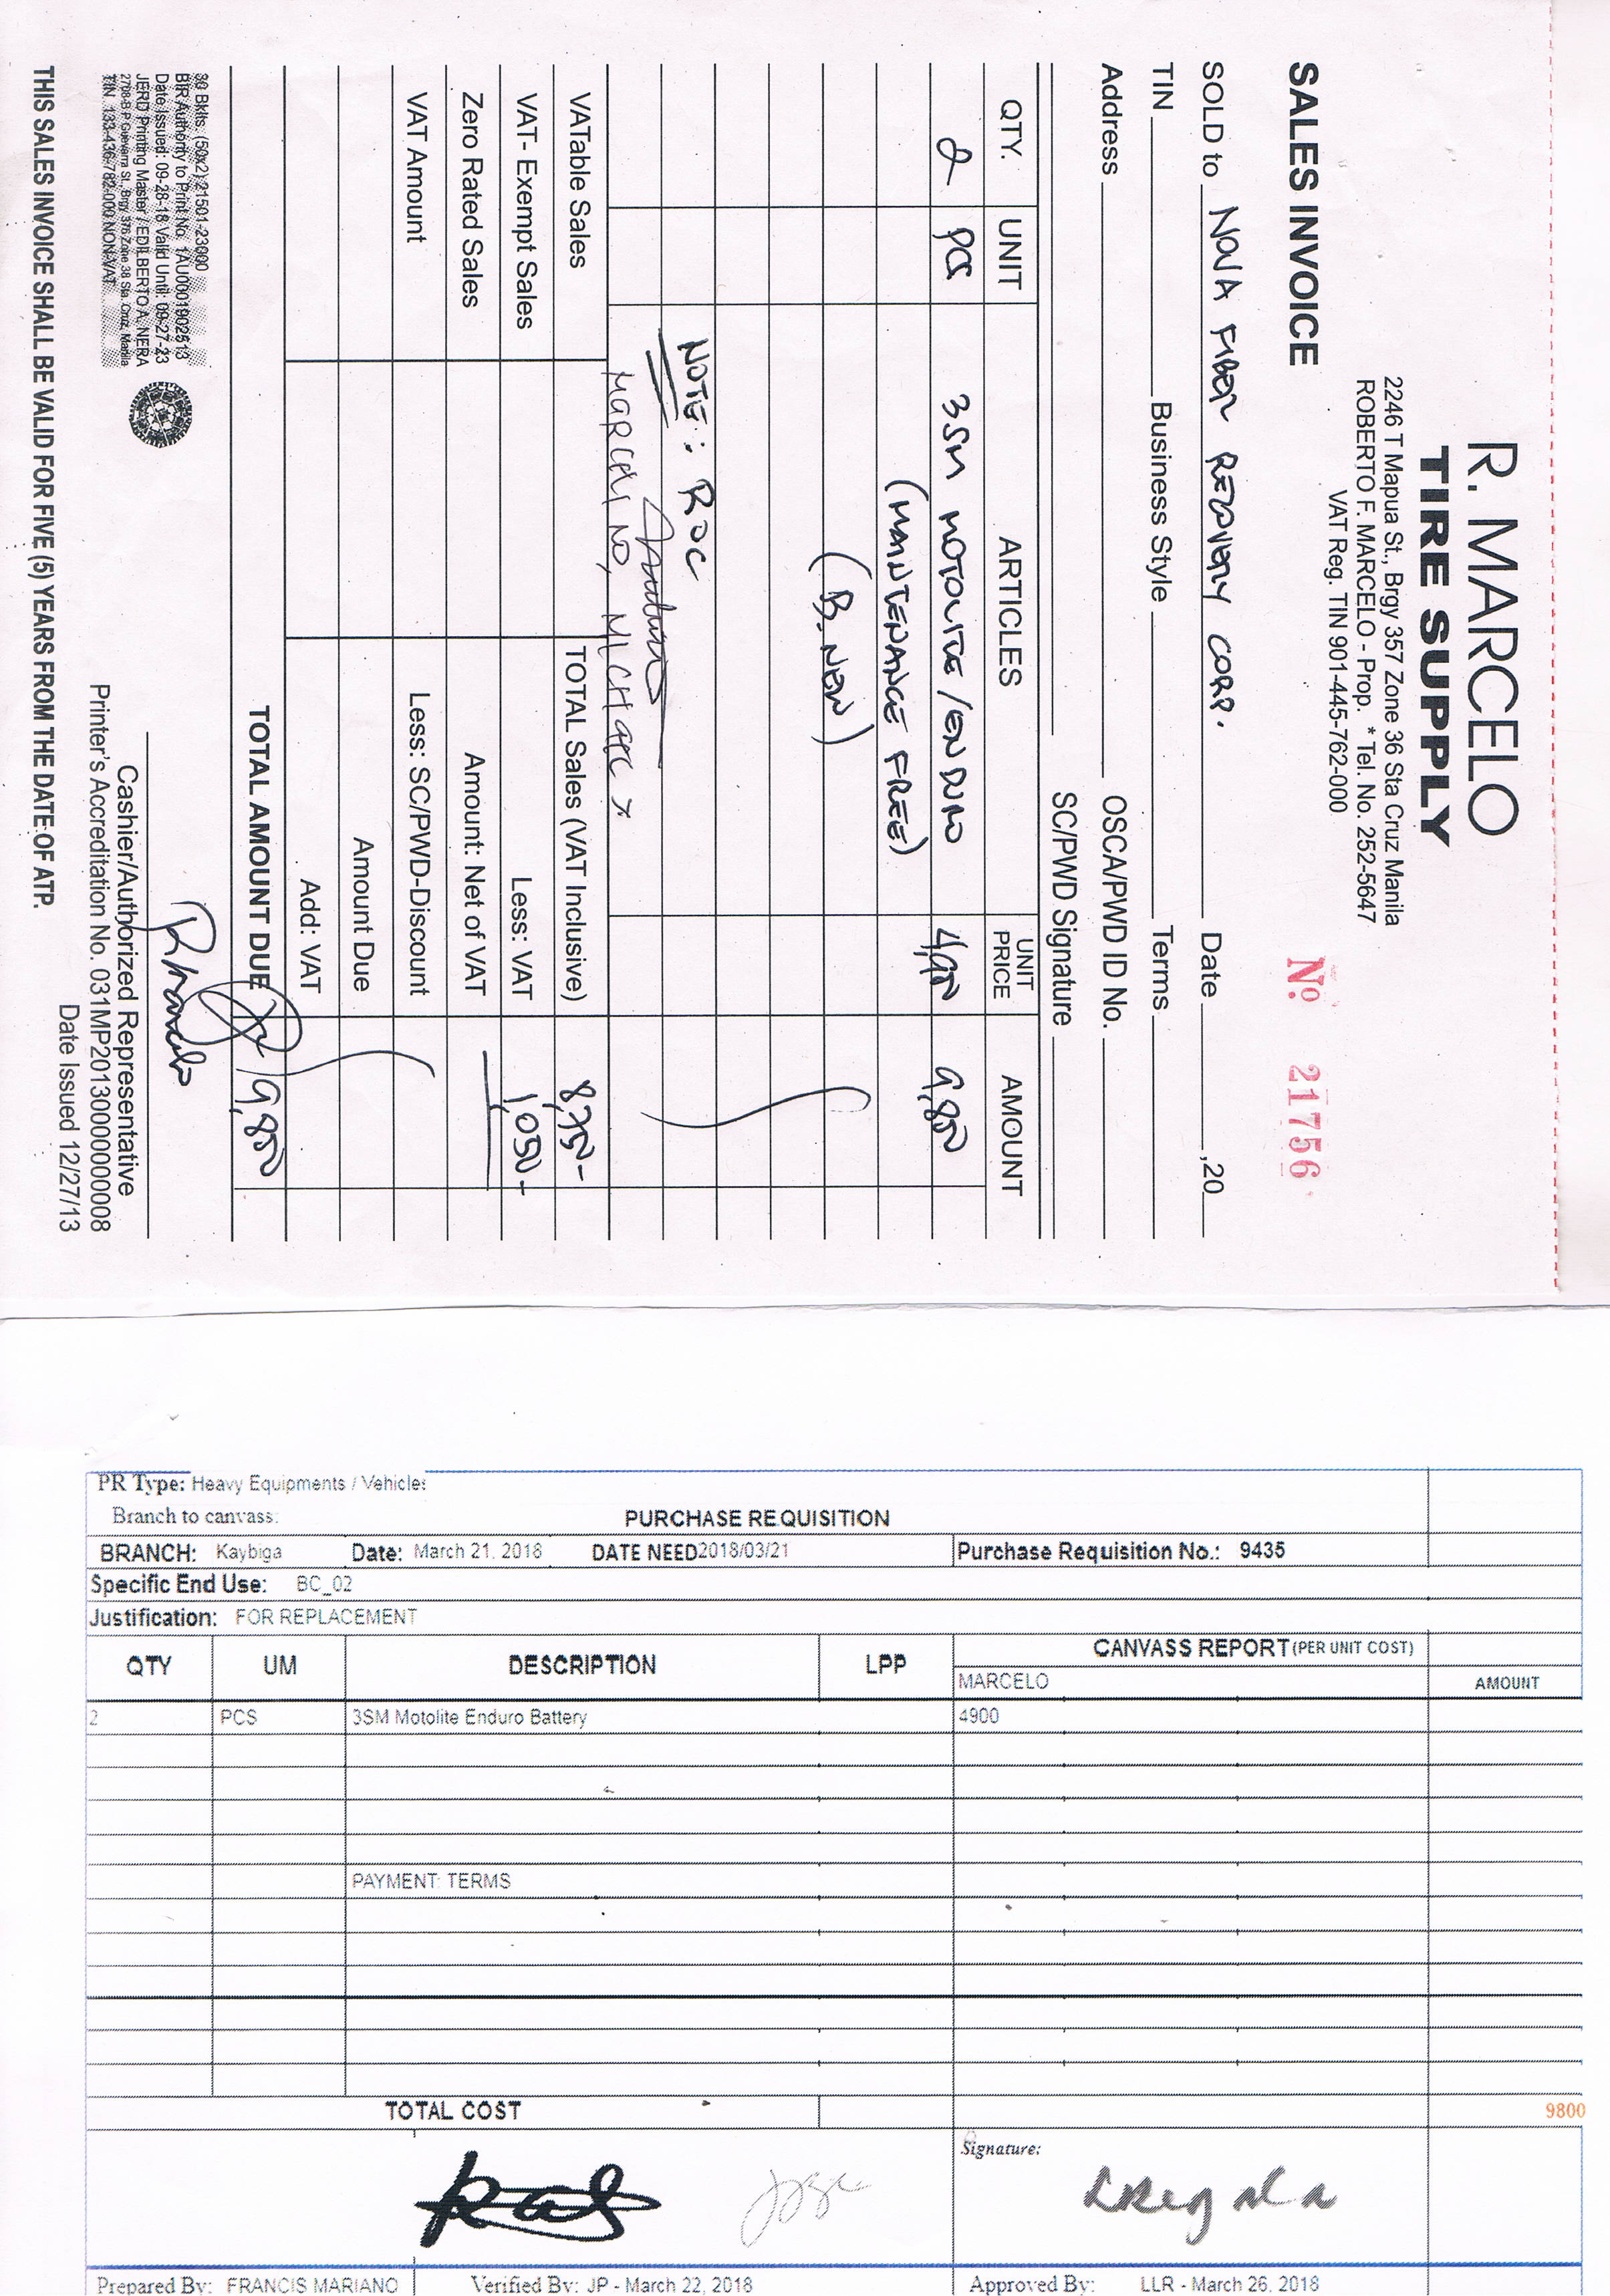 R. MARCELO
TIRE SUPPLY
2246 T Mapua St., Brgy 357 Zone 36 Sta Cruz Manila
ROBERTO F. MARCELO - Prop. * Tel. No. 252-5647
VAT Reg. TIN 901-445-762-000
SALES INVOICE No. 21756
SOLD to NOVA FIBER RECOVERY CORP. Date ,20
TIN Business Style Terms
Address OSCA/PWD ID No.
SC/PWD Signature
QTY. UNIT ARTICLES UNIT PRICE AMOUNT
2 pcs 3SM MOTOLITE / ENDURO 4,900 9,800
(MAINTENANCE FREE)
(B. NEW)
NOTE: ROC
MARCELINO, MICHAEL
VATable Sales TOTAL Sales (VAT Inclusive) 8,750-
VAT- Exempt Sales Less: VAT 1,050-
Zero Rated Sales Amount: Net of VAT
VAT Amount Less: SC/PWD-Discount
Amount Due
Add: VAT
TOTAL AMOUNT DUE 9,800
30 Bklts. (50x2) 21501-23000
BIR Authority to Print No. 1AU0001902513
Date Issued: 09-28-18 Valid Until: 09-27-23
JERD Printing Master / EDILBERTO A. NERA
2708-B P. Guevarra St., Brgy 376 Zone 38 Sta. Cruz, Manila
TIN 133-436-782-000 NON-VAT
Cashier/Authorized Representative
Printer's Accreditation No. 031MP20130000000008
Date Issued 12/27/13
THIS SALES INVOICE SHALL BE VALID FOR FIVE (5) YEARS FROM THE DATE OF ATP.
PR Type: Heavy Equipments / Vehicles
Branch to canvass:
PURCHASE REQUISITION
BRANCH: Kaybiga Date: March 21, 2018 DATE NEED 2018/03/21 Purchase Requisition No.: 9435
Specific End Use: BC_02
Justification: FOR REPLACEMENT
QTY UM DESCRIPTION LPP CANVASS REPORT (PER UNIT COST)
MARCELO AMOUNT
2 PCS 3SM Motolite Enduro Battery 4900
PAYMENT: TERMS
TOTAL COST 9800
Signature:
Prepared By: FRANCIS MARIANO Verified By: JP - March 22, 2018 Approved By: LLR - March 26, 2018